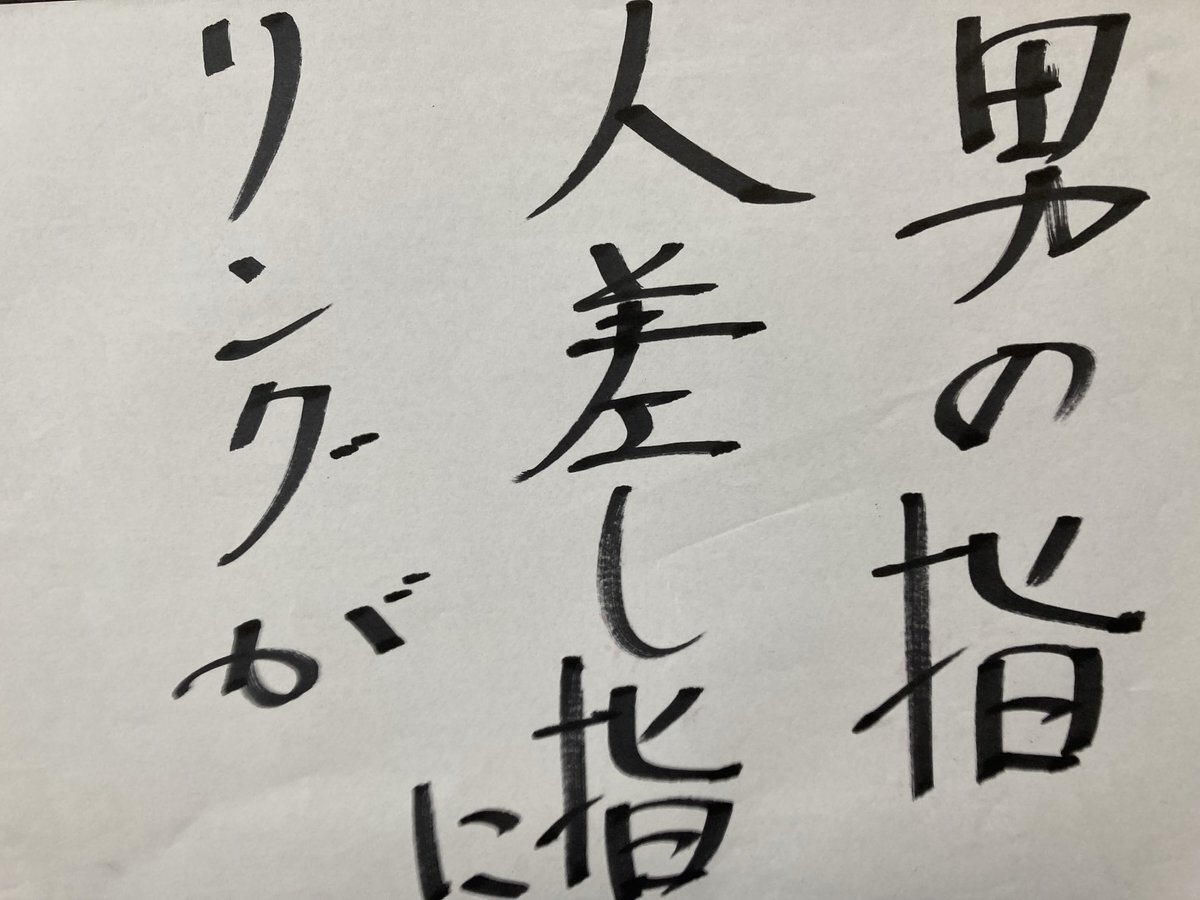 男の指
人差し指に
リングが